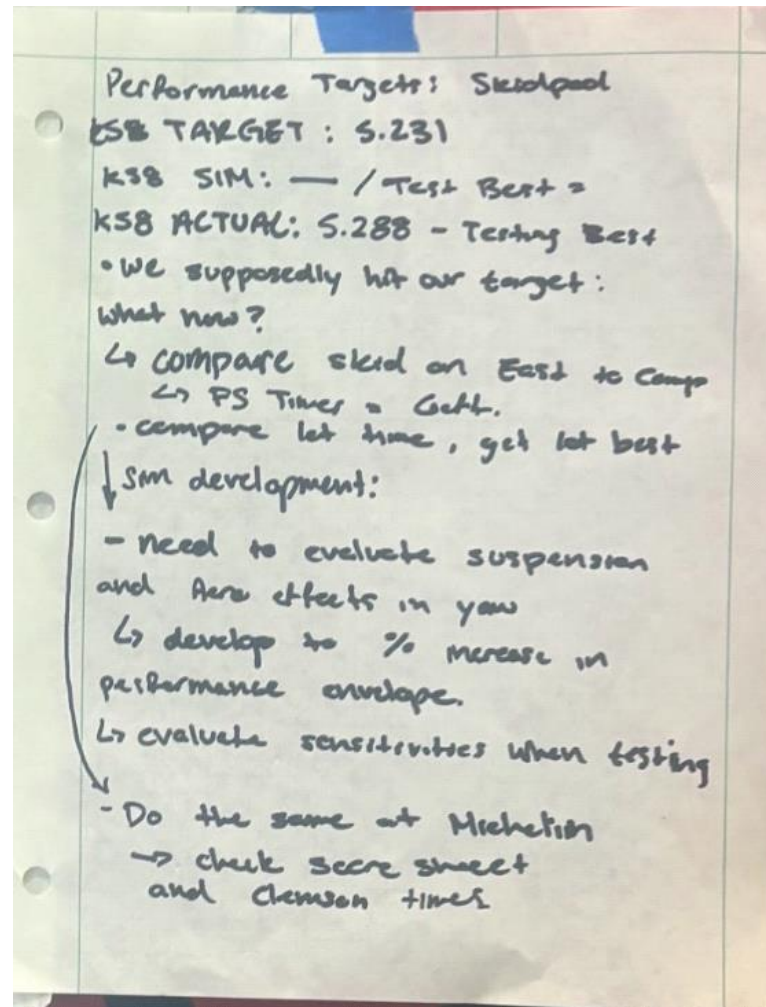 Performance Targets: Skidpad
KS8 TARGET: 5.231
KS8 SIM: — / Test Best =
KS8 ACTUAL: 5.288 - Testing Best
• We supposedly hit our target:
what now?
↳ compare skid on East to Comp
↳ PS Times =
• compare lot time, get lot best
↓ Sim development:
- need to evaluate suspension
and Aero effects in yaw
↳ develop to % increase in
performance envelope.
↳ evaluate sensitivities when testing
- Do the same at Michelin
→ check score sheet
and Clemson times